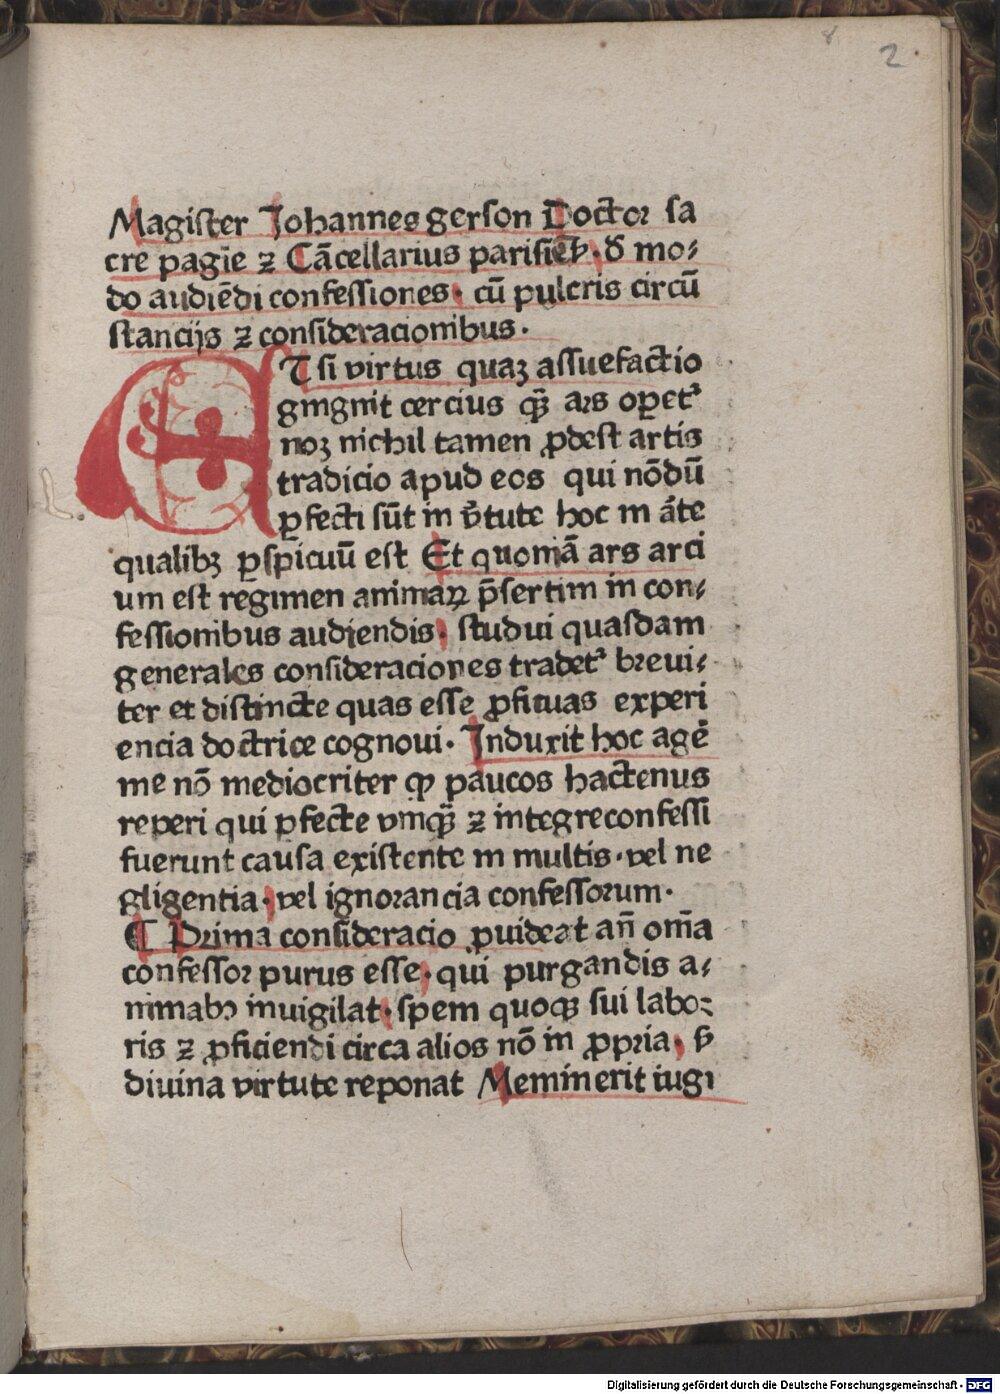 8
2
Magister Johannes gerson Doctoꝛ ſa
cre pagīe ⁊ Cācellarius pariſieñ· ð mo⸗
do audiēdi confeſſiones· cū pulcris circū
ſtancijs ⁊ conſideracionibus·
ET ſi virtus quaꝫ aſſuefactio
gingnit cercius qͣ̄ aꝛs oꝑet᷑
noꝫ nichil tamen ꝓdeſt artis
tradicio apud eos qui nōdū
ꝑfecti ſūt in v̄tute hoc in āte
qualibꝫ ꝑſpicuū eſt Et quoniā ars arci
um eſt regimen animaꝝ p̄ſertim in con⸗
feſſionibus audiendis· ſtudui quaſdam
generales conſideraciones tradet᷑ bꝛeui⸗
ter et diſtincte quas eſſe ꝓficuas experi
encia doctrice cognoui· Induxit hoc agē
me nō mediocriter ꝙ paucos hactenus
reperi qui ꝑfecte vmqͣ̄ ⁊ integre confeſſi
fuerunt cauſa exiſtente in multis· vel ne
gligentia· vel ignoꝛancia confeſſorum·
¶ Pꝛima conſideracio ꝓuideat añ om̄a
confeſſoꝛ purus eſſe· qui purgandis a⸗
nimabꝫ inuigilat· ſpem quoqꝫ ſui labo⸗
ris ⁊ ꝓficiendi circa alios nō in ꝓpꝛia· ſꝫ
diuina virtute reponat Meminerit iugi
Digitalisierung gefördert durch die Deutsche Forschungsgemeinschaft - DFG